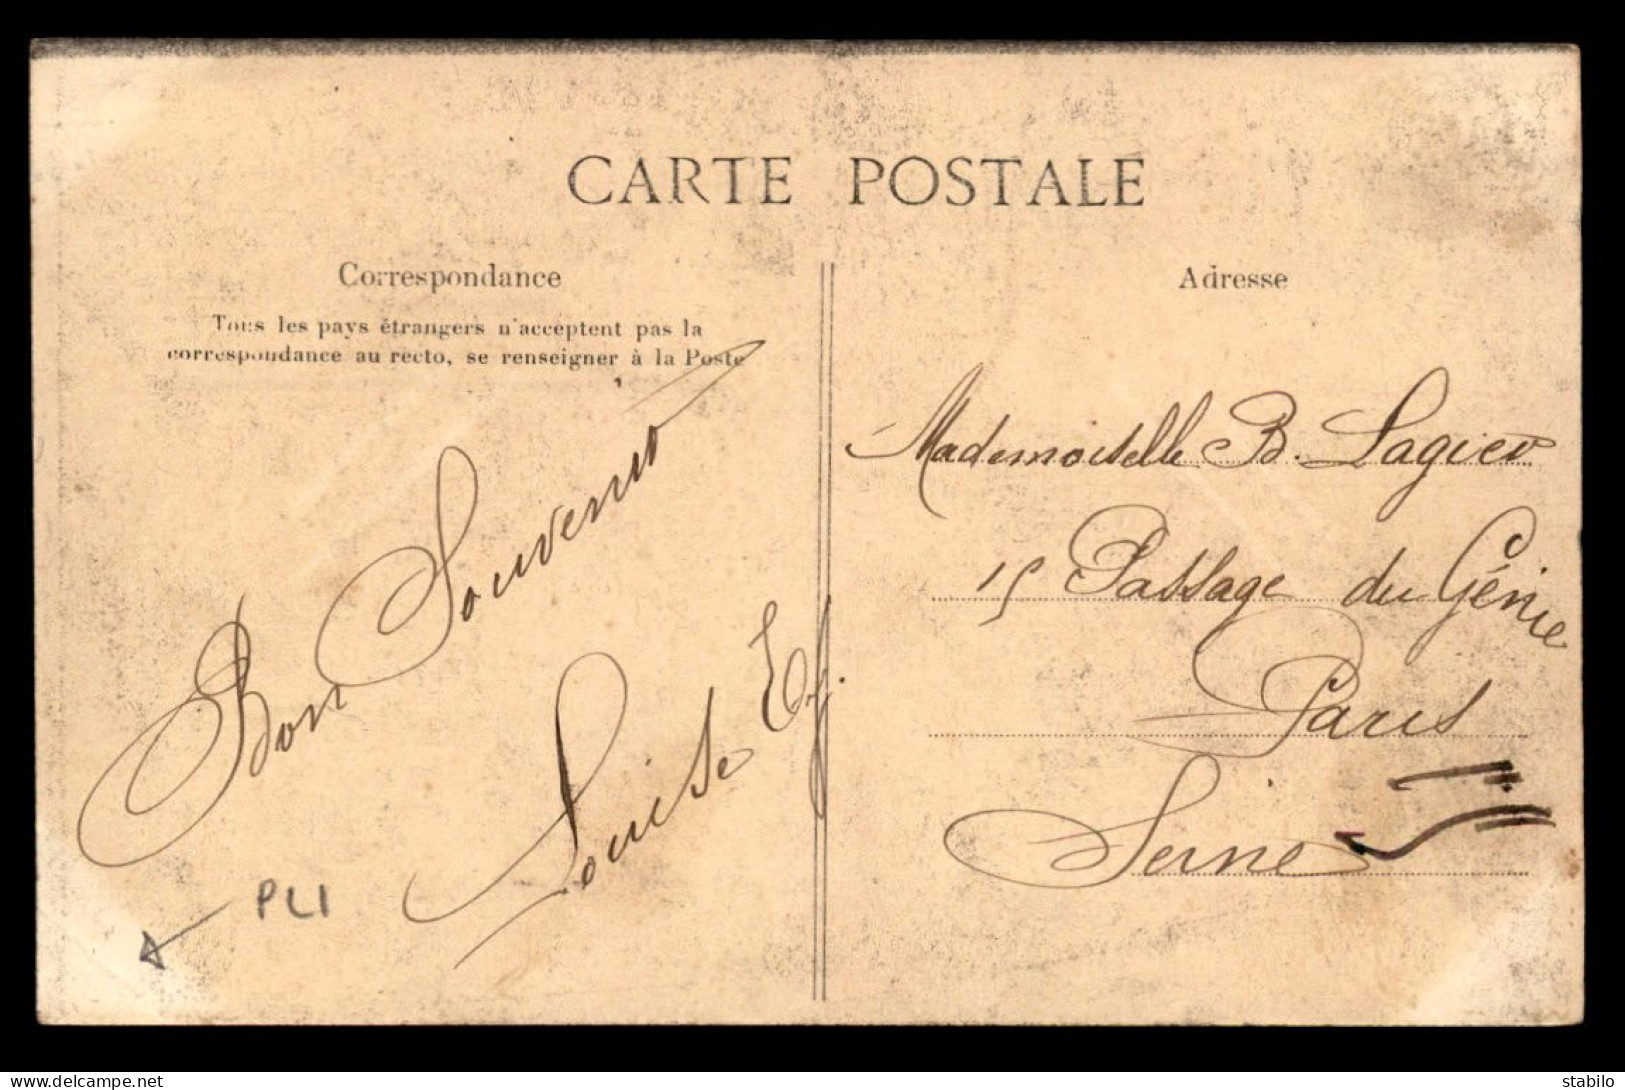 CARTE POSTALE
Correspondance
Tous les pays étrangers n'acceptent pas la
correspondance au recto, se renseigner à la Poste
Bon Souvenir
Louise
PLI
Adresse
Mademoiselle B.
15 Passage du Génie
Paris
Seine
www.delcampe.net
stabilo